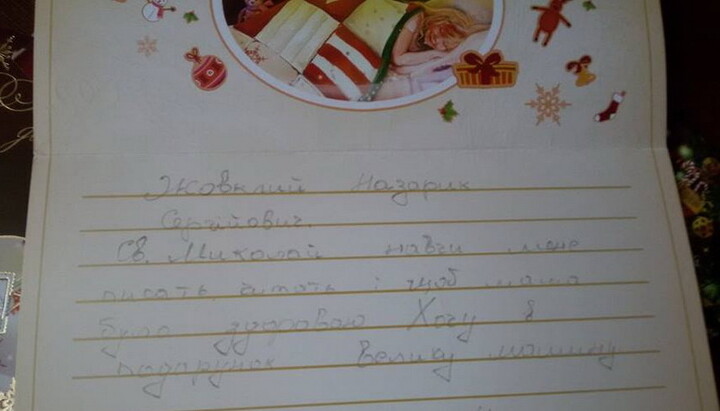 Жовклий Назарик
Сергійович.
Св. Миколай навчи мене
писать, читать і щоб мама
була здороваю Хочу в
подарунок велику машину